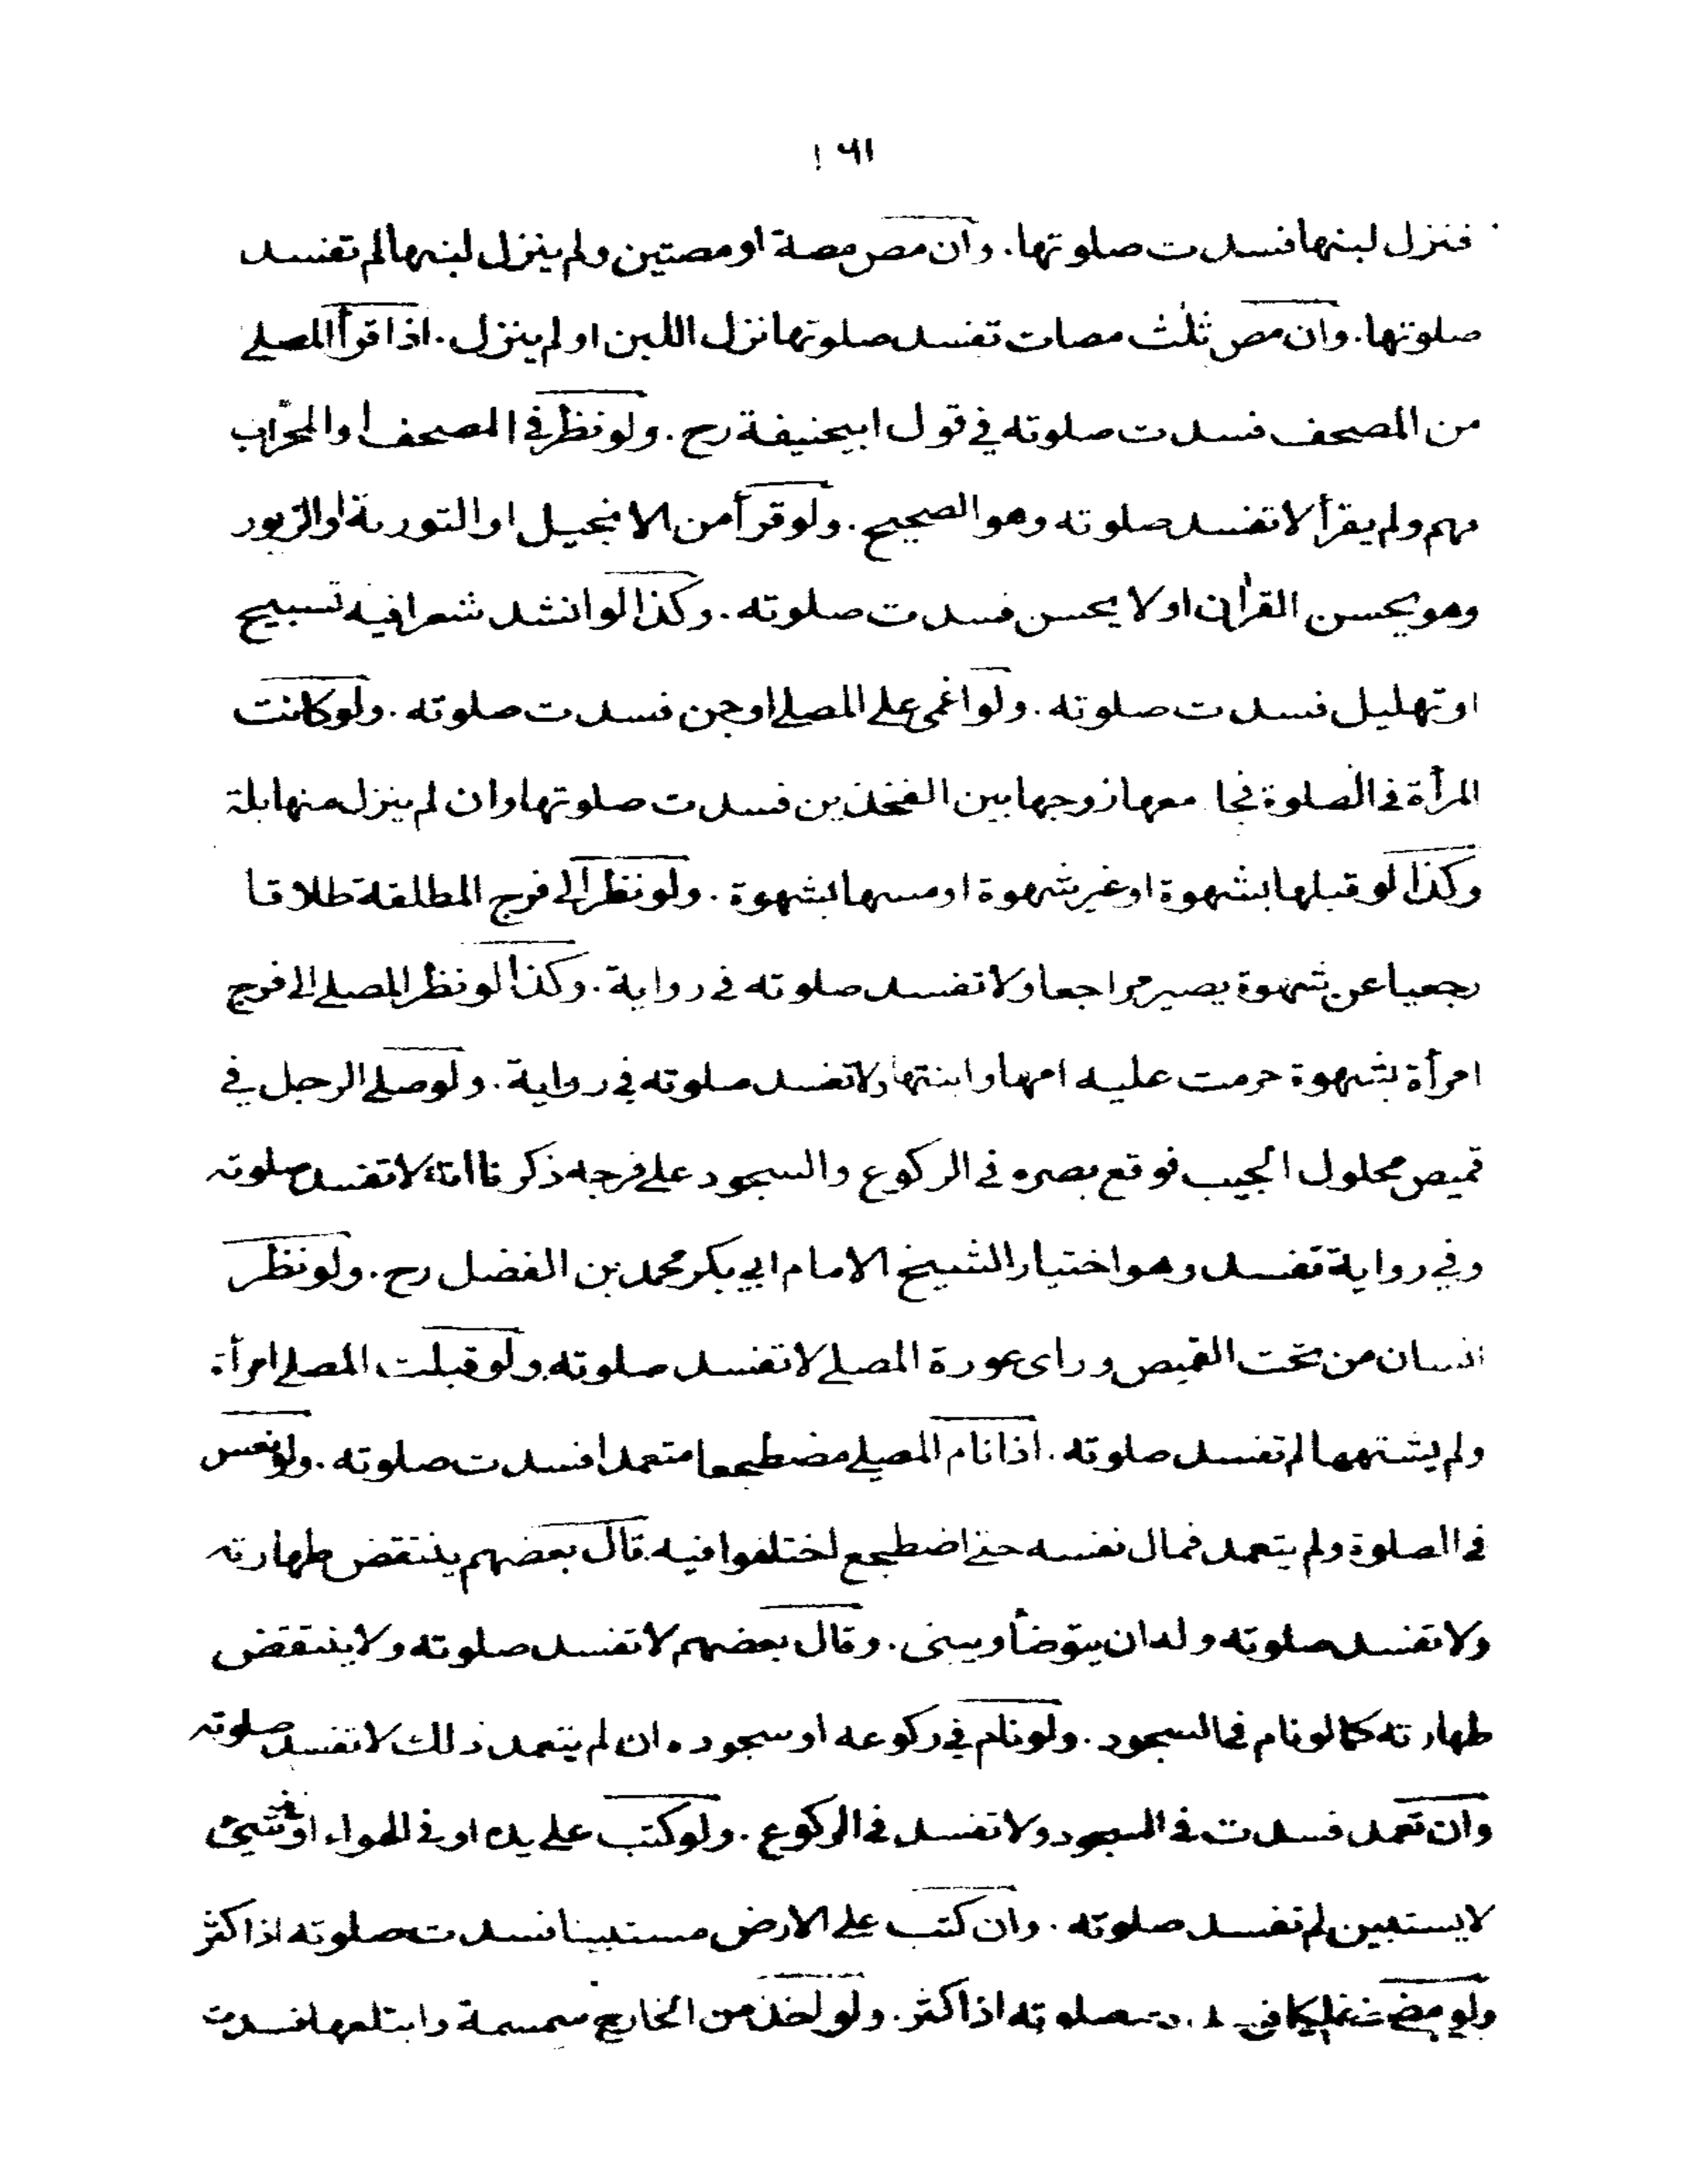 ١٦١
فنزل لبنها فسدت صلوتها. وان مص مصة او مصتين ولم ينزل لبنها لم تفسد
صلوتها. وان مص ثلٰث مصات تفسد صلوتها نزل اللبن او لم ينزل. اذا قرأ المصلے
من المصحف فسدت صلوته في قول ابيحنيفة رح. ولو نظر في المصحف او المحراب
فهم ولم يقرأ لا تفسد صلوته وهو الصحيح. ولو قرأ من الانجيل او التورية او الزبور
وهو يحسن القرأن او لا يحسن فسدت صلوته. وكذا لو انشد شعرا فيه تسبيح
او تهليل فسدت صلوته. ولو اغمى علے المصلے او جن فسدت صلوته. ولو كانت
المرأة في الصلوة فجا معها زوجها بين الفخذين فسدت صلوتها وان لم ينزل منها بلة
وكذا لو قبلها بشهوة او غير شهوة او مسها بشهوة. ولو نظر الے فرج المطلقة طلاقا
رجعيا عن شهوة يصير مراجعا ولا تفسد صلوته في رواية. وكذا لو نظر المصلے الے فرج
امرأة بشهوة حرمت عليه امها وابنتها ولا تفسد صلوته في رواية. ولو صلے الرجل في
قميص محلول الجيب فوقع بصره في الركوع والسجود علے فرجه ذكرنا انه لا تفسد صلوته
وفي رواية تفسد وهو اختيار الشيخ الامام ابي بكر محمد بن الفضل رح. ولو نظر
انسان من تحت القميص وراى عورة المصلے لا تفسد صلوته. ولو قبلت المصلے امرأة
ولم يشتهها لم تفسد صلوته. اذا نام المصلے مضطجعا متعمدا فسدت صلوته. ولو نعس
في الصلوة ولم يتعمد فمال نفسه حتے اضطجع اختلفوا فيه. قال بعضهم ينتقض طهارته
ولا تفسد صلوته وله ان يتوضأ ويبنى. وقال بعضهم لا تفسد صلوته ولا ينتقض
طهارته كما لو نام في السجود. ولو نام في ركوعه او سجوده ان لم يتعمد ذلك لا تفسد صلوته
وان تعمد فسدت في السجود ولا تفسد في الركوع. ولو كتب علے يده او في الهواء او في شيئ
لا يستبين لم تفسد صلوته. وان كتب علے الارض مستبينا فسدت صلوته اذا كثر
ولو مضغ صلوته اذا كثر. ولو اخذ من الخارج سمسمة وابتلعها فسدت